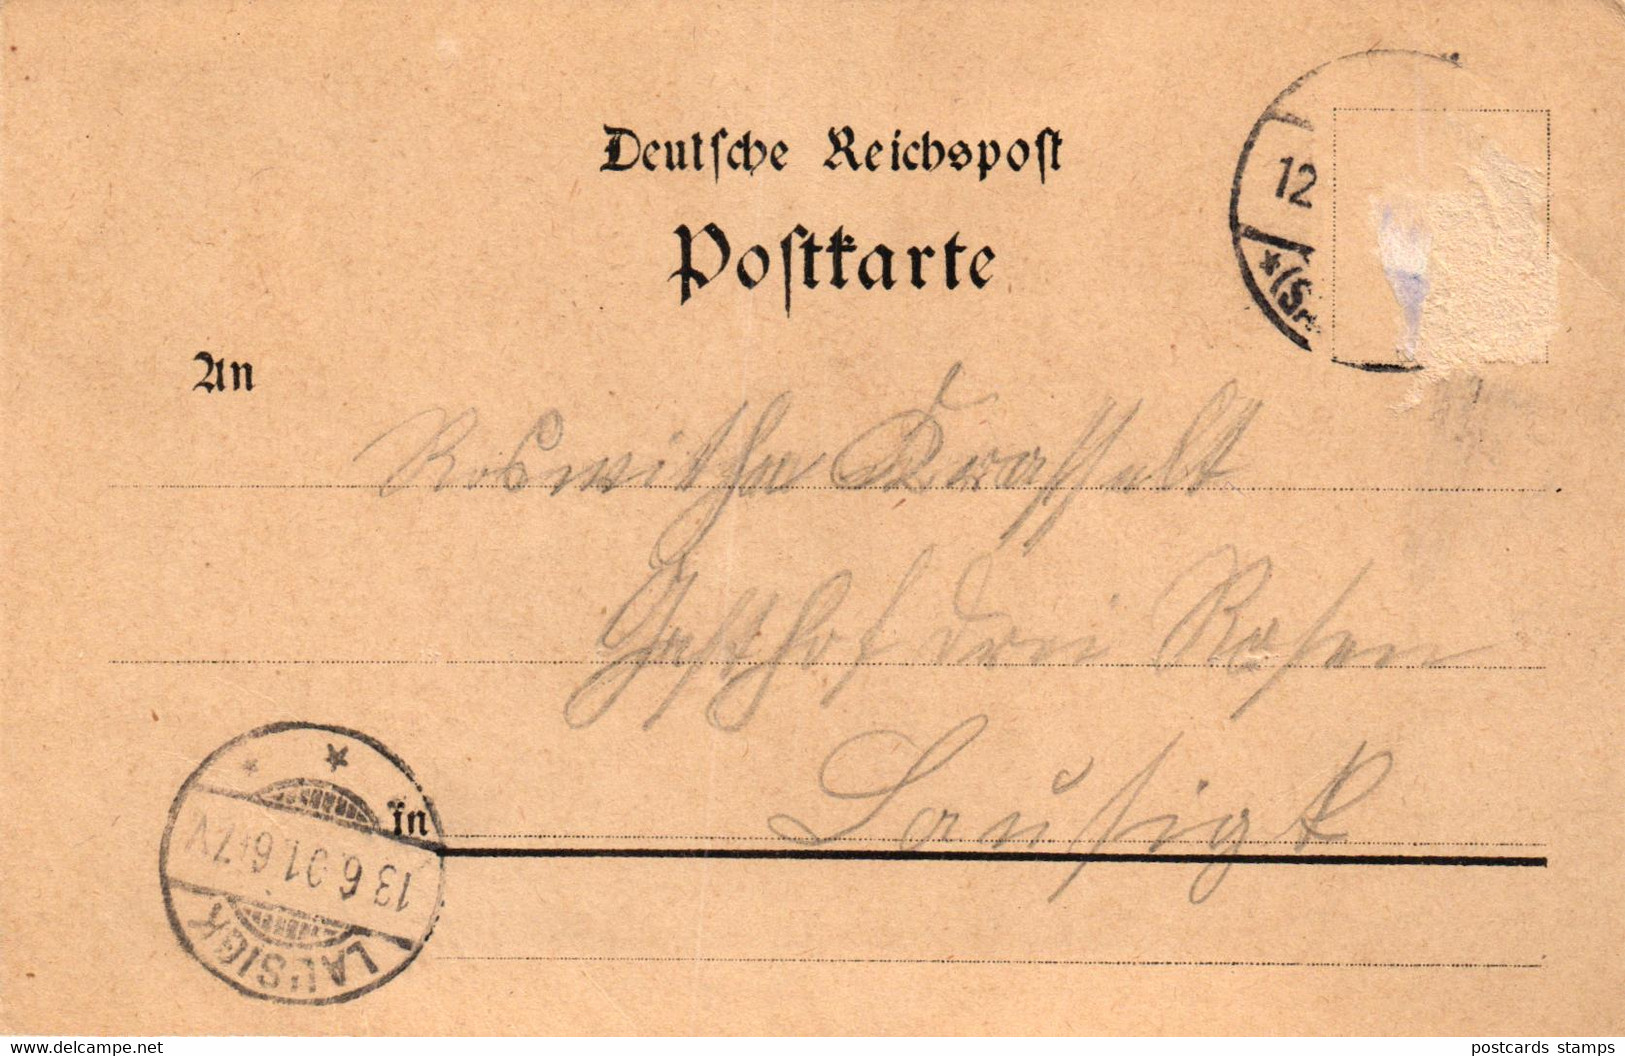 Deutsche Reichspost
Postkarte
12
An
Roswitha Krasselt
Gasthof drei Rosen
in Lausigk
13.6.01.6-7V
LAUSIGK
www.delcampe.net
postcards stamps